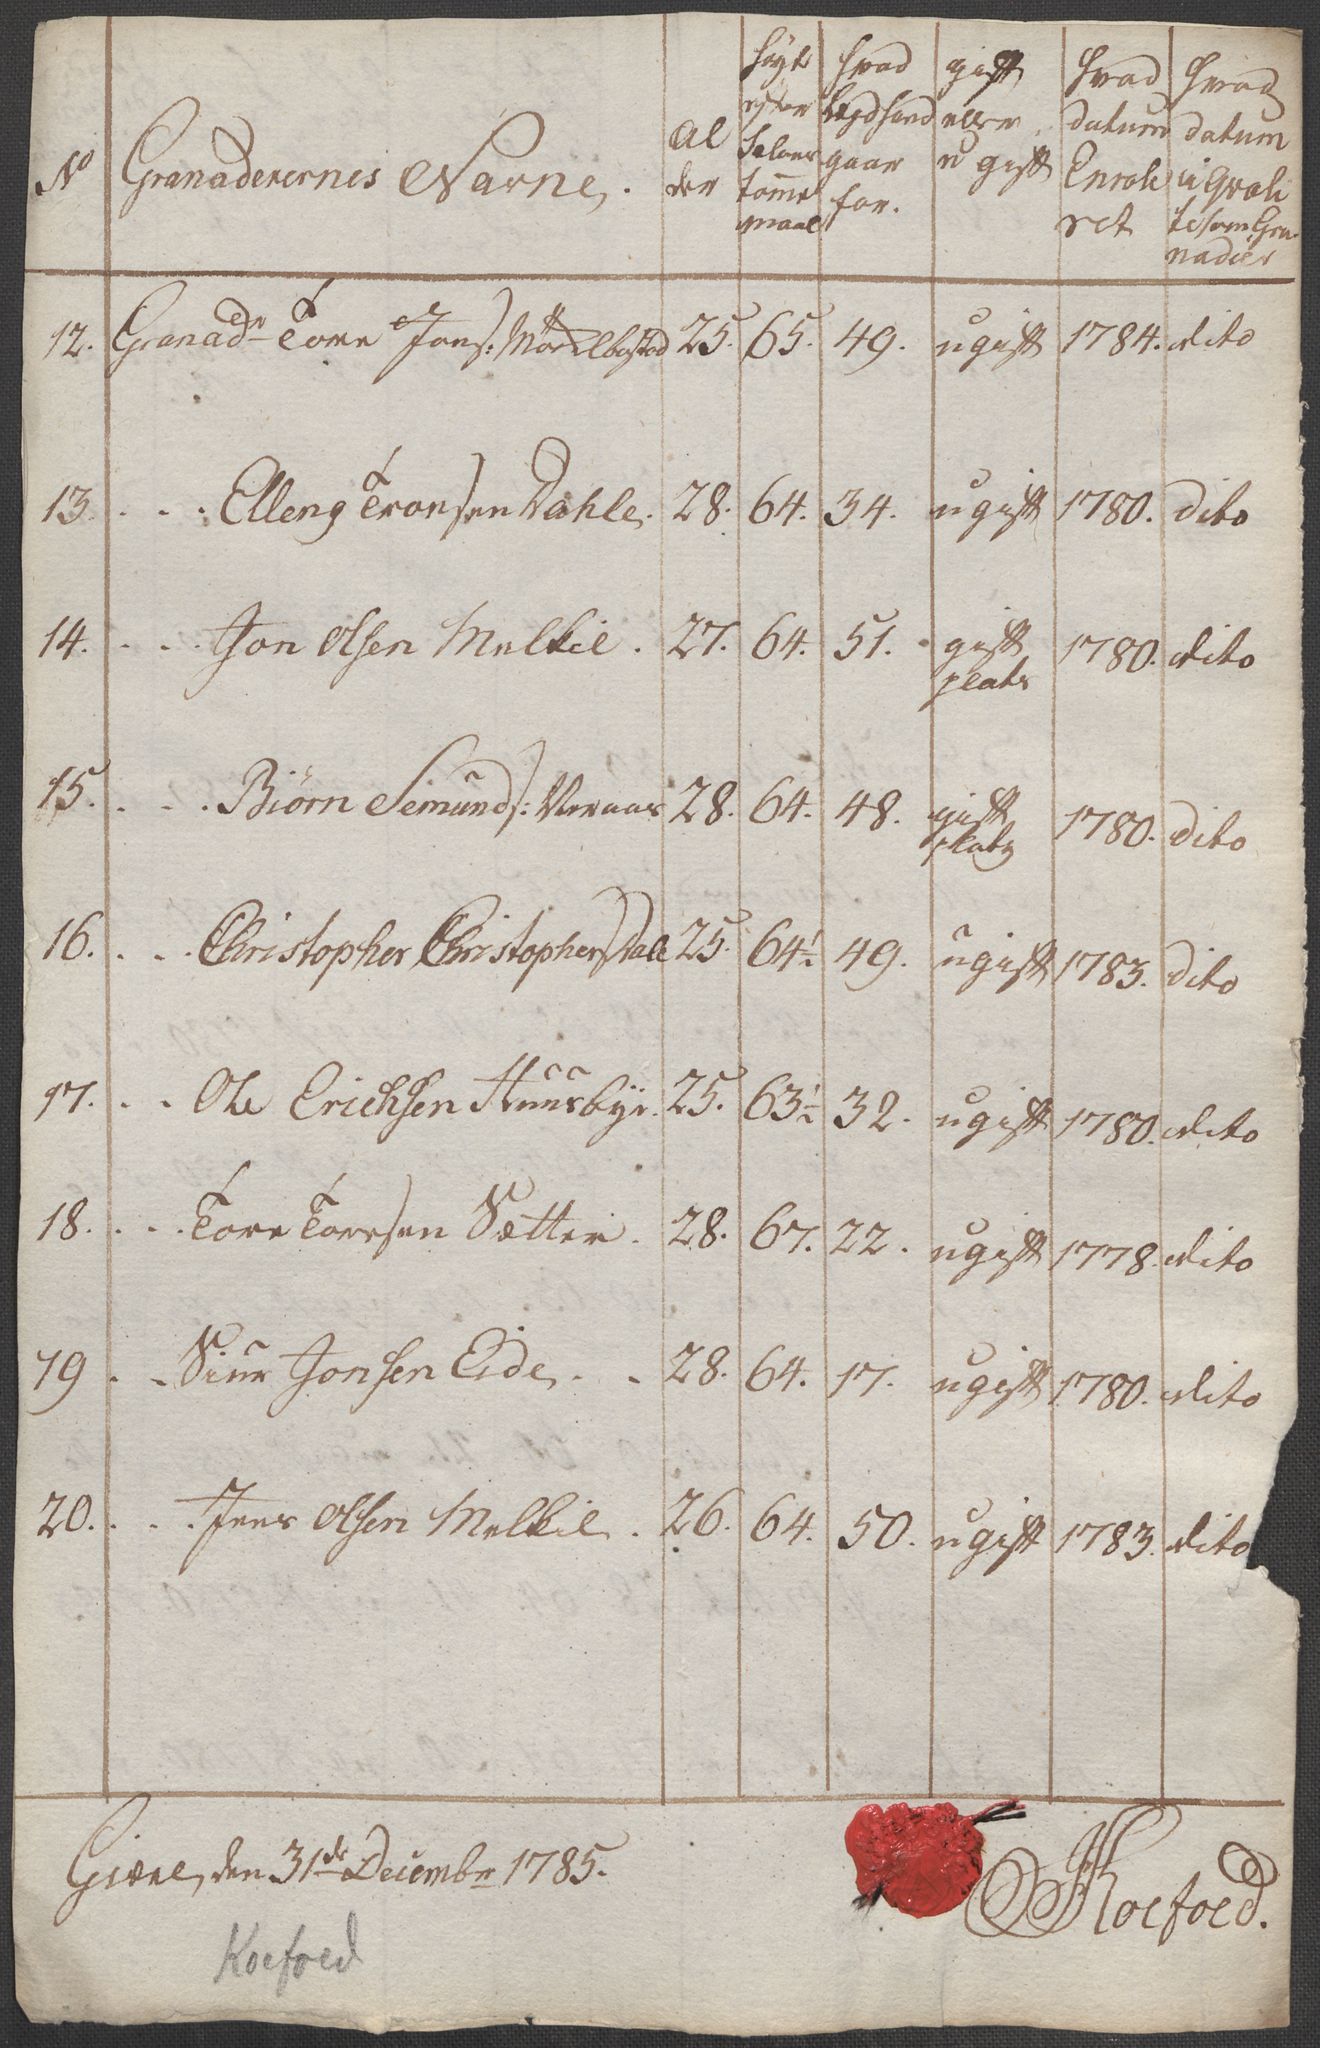 No Granaderernes Navne. Alder høyde efter Sclaver tomme maal hvad Lægd hand gaar for. gift eller ugift hvad datum Enroleret hvad datum i Qvalite som Granadier
12. Granadr Tore Jons: 25. 65. 49. ugift 1784. dito
13. . . . Elleng Tronsen Dahle. 28. 64. 34. ugift 1780. dito
14. . . . Jon Olsen Melkil. 27. 64. 51. gift plats 1780. dito
15. . . . Biörn Simunds: Veraas 28. 64. 48. gift platz 1780. dito
16. . . . Christopher Christophers Dale 25. 64½ 49. ugift 1783. dito
17. . . Ole Erichsen Huusbye. 25. 63½ 32. ugift 1780. dito
18. . . . Tore Toresen Sætter. 28. 67. 22. ugift 1778. dito
19 . . Siur Jonsen Eide. . 28. 64. 17. ugift 1780. dito
20. . . . Jens Olsen Melkil. 26. 64. 50. ugift 1783. dito
den 31de Decembr 1785.
Koefoed.
Koefoed